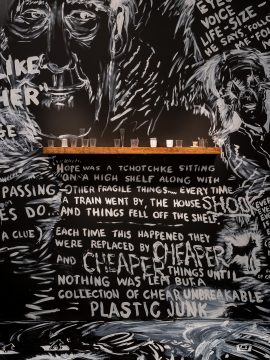 EYES
VOICE
LIFE-SIZE-
HE SAYS, FOLL
ME TO
LIKE
HER"
HOPE WAS A TCHOTCHKE SITTING
ON A HIGH SHELF ALONG WITH
OTHER FRAGILE THINGS... EVERY TIME
A TRAIN WENT BY, THE HOUSE SHOOK
AND THINGS FELL OFF THE SHELF
PASSING
ES DO...
A CLUE)
EACH TIME THIS HAPPENED THEY
WERE REPLACED BY CHEAPER
AND CHEAPER THINGS UNTIL
NOTHING WAS LEM BUT A
COLLECTION OF CHEAP UNBREAKABLE
PLASTIC JUNK